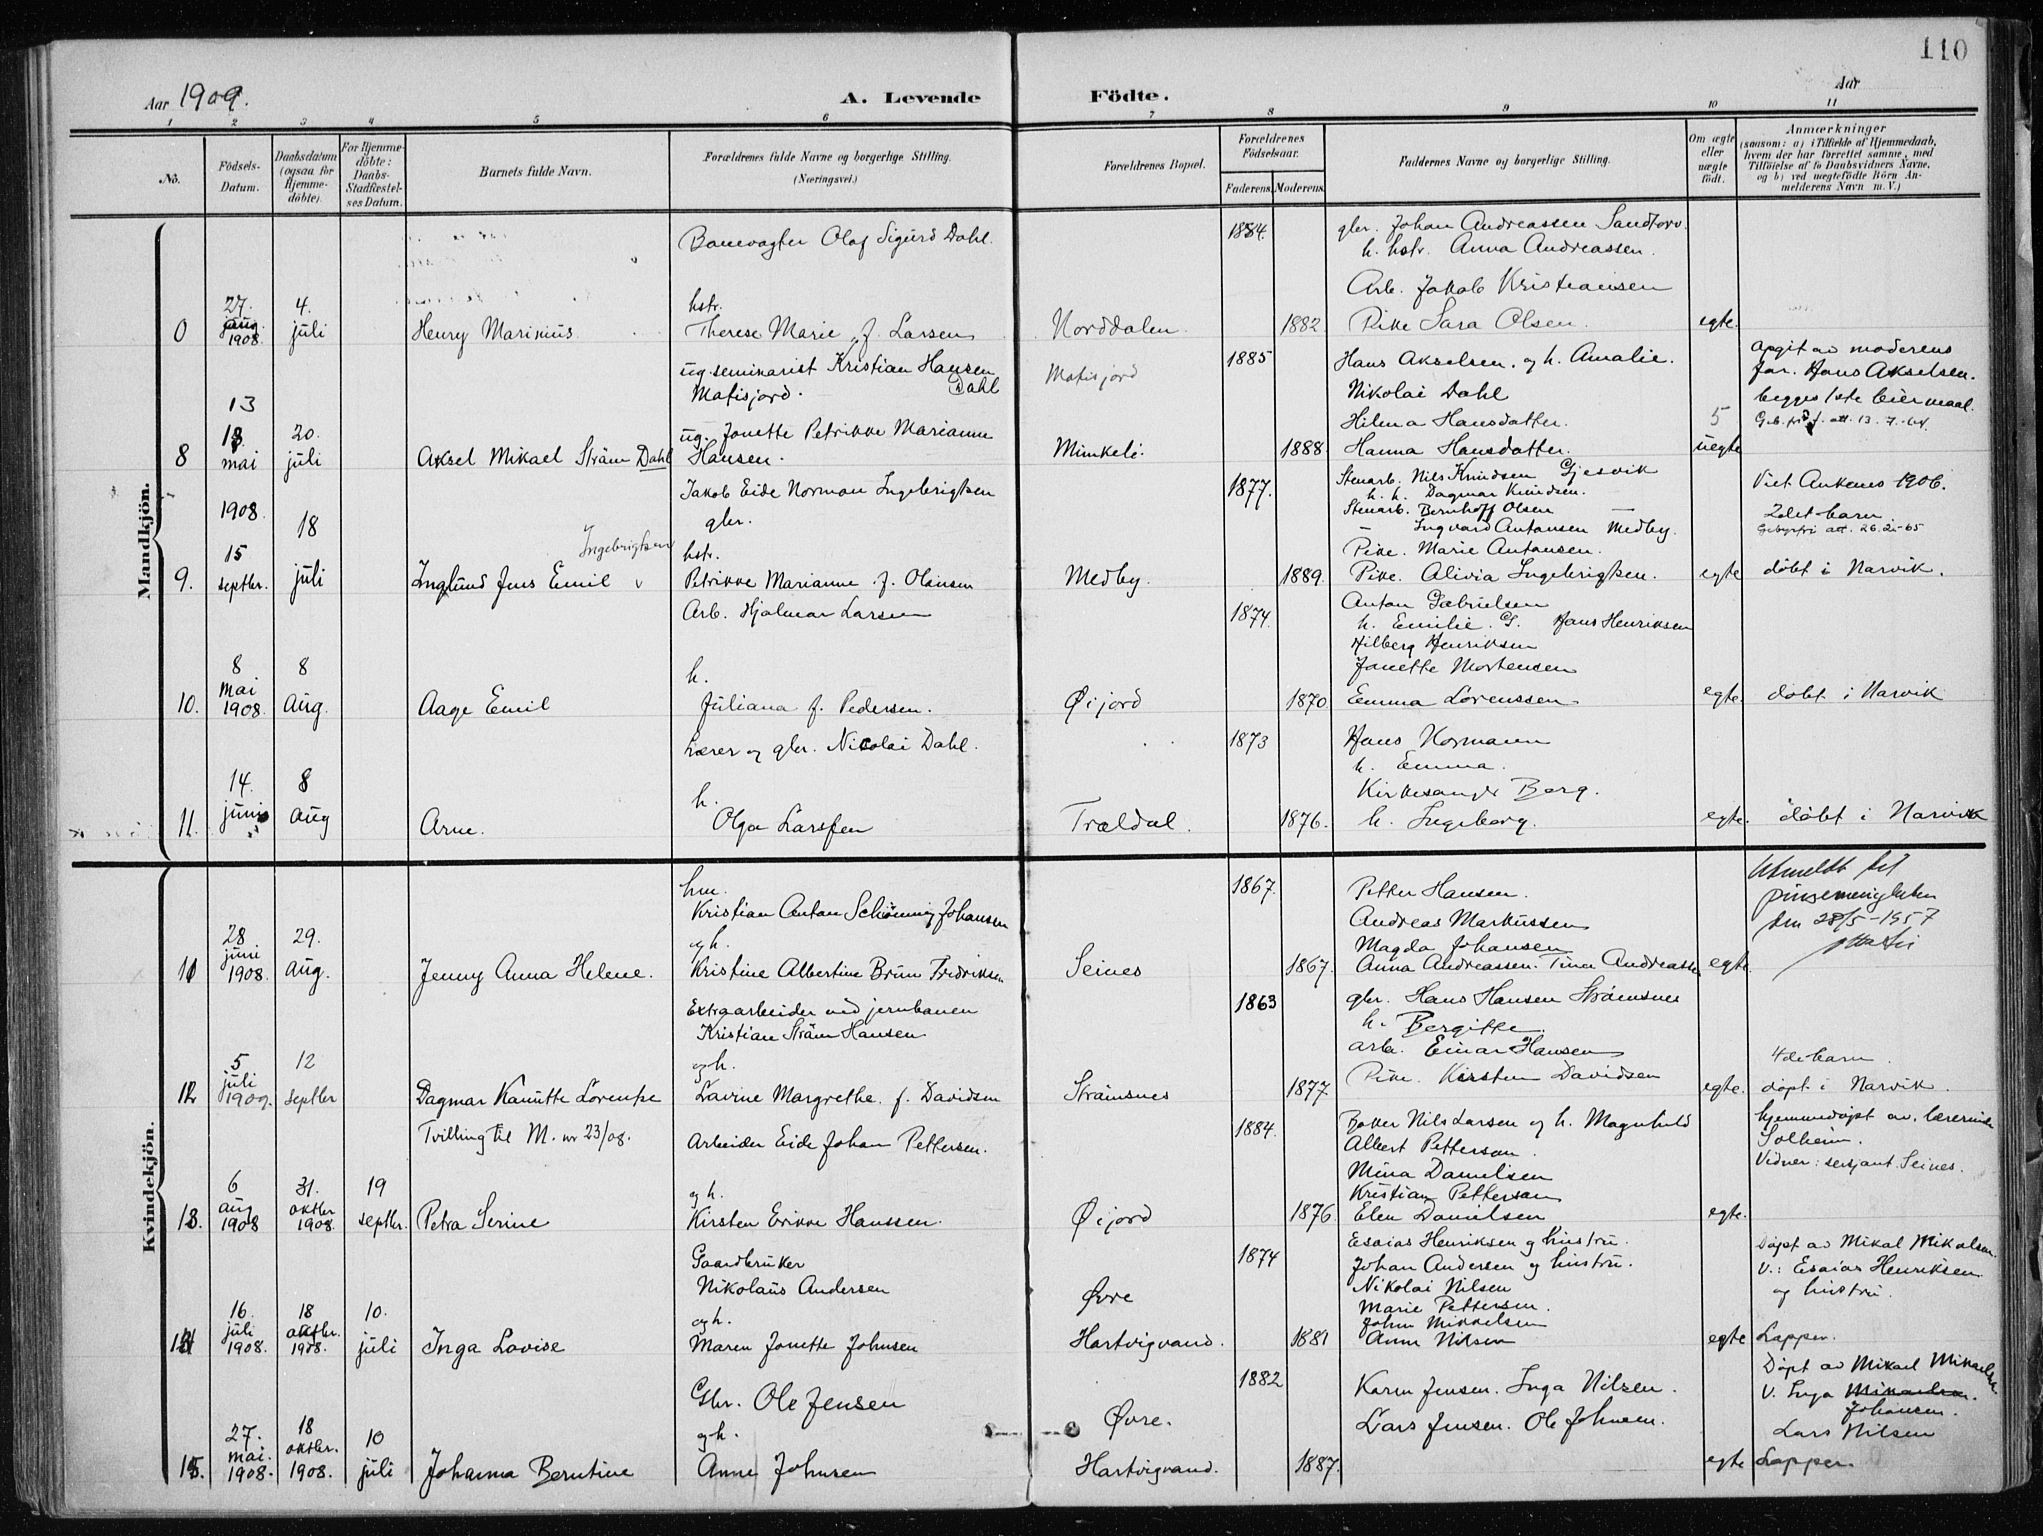 110
Aar 1909.
A. Levende Födte.
Aar
1 2 3 4 5 6 7 8 9 10 11
No.
Födsels-Datum.
Daabsdatum (ogsaa for Hjemme-döbte).
For Hjemme-döbte: Daabs-Stadfæstel-ses Datum.
Barnets fulde Navn.
Forældrenes fulde Navne og borgerlige Stilling.
(Næringsvei.)
Forældrenes Bopæl.
Forældrenes Födselsaar.
Faderens. Moderens.
Faddernes Navne og borgerlige Stilling.
Om ægte eller uægte födt.
Anmærkninger
(saasom: a) i Tilfælde af Hjemmedaab,
hvem der har forrettet samme, med
Tilföielse af to Daabsvidners Navne,
og b) ved uægtefödte Börn An-
melderens Navn m. V.)
Mandkjön.
Banevogter Olaf Sigurd Dahl.
1884.
gbr. Johan Andreassen Sandtorv.
h. hstr. Anna Andreassen.
Arb. Jakob Kristiansen
27. 4.
hstr.
0 1908. juli Henry Marinius Therese Marie f. Larsen Norddalen. 1882 Pike Sara Olsen. egte.
ug. seminarist Kristian Hansen Dahl
Matisjord.
Matisjord
1885
Hans Akselsen. og h. Amalie.
Nikolai Dahl
Hilma Hansdatter.
Opgit av moderens
far. Hans Akselsen.
begges 1ste leiermaal.
13
18. 20.
ug. Jonette Petrikke Marianne
5
8 mai juli Aksel Mikael Strøm Dahl Hansen. Minkeli. 1888 Hanna Hansdatter. uegte
Jakob Eide Norman Ingebrigtsen
gbr.
1877.
Stenarb. Nils Knudsen Gjesvik
h. h. Dagmar Knudsen.
Stenarb. Bernhoff Olsen
— Ingvard Antonsen Medby.
Pike. Marie Antonsen.
Viet Ankenes 1906.
2det barn
1908. 18
Ingebrigtsen
15
hstr.
9. septbr. juli Inglund Jens Emil v Petrikke Marianne f. Olausen Medby. 1889. Pike. Alivia Ingebrigtsen. egte döbt i Narvik.
Arb. Hjalmar Larsen
1874.
Anton Gabrielsen
h. Emilie. G. Hans Henriksen
Hilberg Henriksen
Jonette Mortensen
8 8
mai
h.
10. 1908. Aug. Aage Emil Juliana f. Pedersen. Øijord 1870 Emma Lorenssen egte. döbt i Narvik
Lærer og gbr. Nicolai Dahl.
1873
Hans Normann
h. Emma.
Kirkesanger Berg.
14. 8
h.
11. juni aug Arne. Olga Larssen Trældal. 1876. h. Ingeborg. egte. döbt i Narvik
Kvindekjön.
hm.
Kristian Anton Schönning Johansen
1867.
Petter Hansen.
Andreas Markussen
Magda Johansen
Utmeldt til
pinsemenigheten
den 28/5-1957
28 29.
juni
og h.
11 1908. aug. Jenny Anna Helene. Kristine Albertine Brun Fredriksen Seines 1867. Anna Andreassen. Tina Andreassen egte.
Extraarbeider ved jernbanen
Kristian Strøm Hansen
1863
gbr. Hans Hansen Strømsnes
h. Bergitte.
arb. Einar Hansen
4de barn.
5 12
juli
og h.
12 1909. septbr Dagmar Kanutte Lorentse Lavine Margrethe. f. Davidsen Strømsnes 1877 Pike. Kirsten Davidsen egte. döpt i Narvik.
Tvilling til M. nr 23/08.
Arbeider Eide Johan Pettersen.
1884.
Baker Nils Larsen og h. Magnhild
Albert Pettersen.
Mina Danielsen
Kristian Pettersen
hjemmedöpt av. lærerinde
Solheim.
Vidner: sersjant Seines.
6 31. 19
aug oktbr
og h.
13. 1908 1908. septbr. Petra Serine Kirsten Erikke Hanssen. Øijord 1876 Elen Danielsen egte.
Gaardbruker
Nikolaus Andersen
1874
Esaias Henriksen og hustru.
Johan Andersen og hustru.
Nikolai Nilsen
Marie Pettersen.
John Mikkelsen
Döpt av Mikal Mikalsen.
V.: Esaias Henriksen
og hustru.
16. 18 10.
juli oktbr.
og h.
Øvre
14 1908. 1908. juli Inga Lovise Maren Jonette Johnsen Hartvigvand. 1881 Anne Nilsen egte Lapper.
Gbr. Ole Jensen
1882
Karen Jensen. Inga Nilsen.
Lars Jensen. Ole Johnsen.
Döpt av Mikael Mikaelsen.
V. Inga Mikaelsen.
Johansen.
Lars Nilsen
27. 18 10
mai. oktbr.
og h.
Øvre.
15. 1908. 1908. juli Johanna Berntine Anne Johnsen Hartvigvand. 1887. egte Lapper.